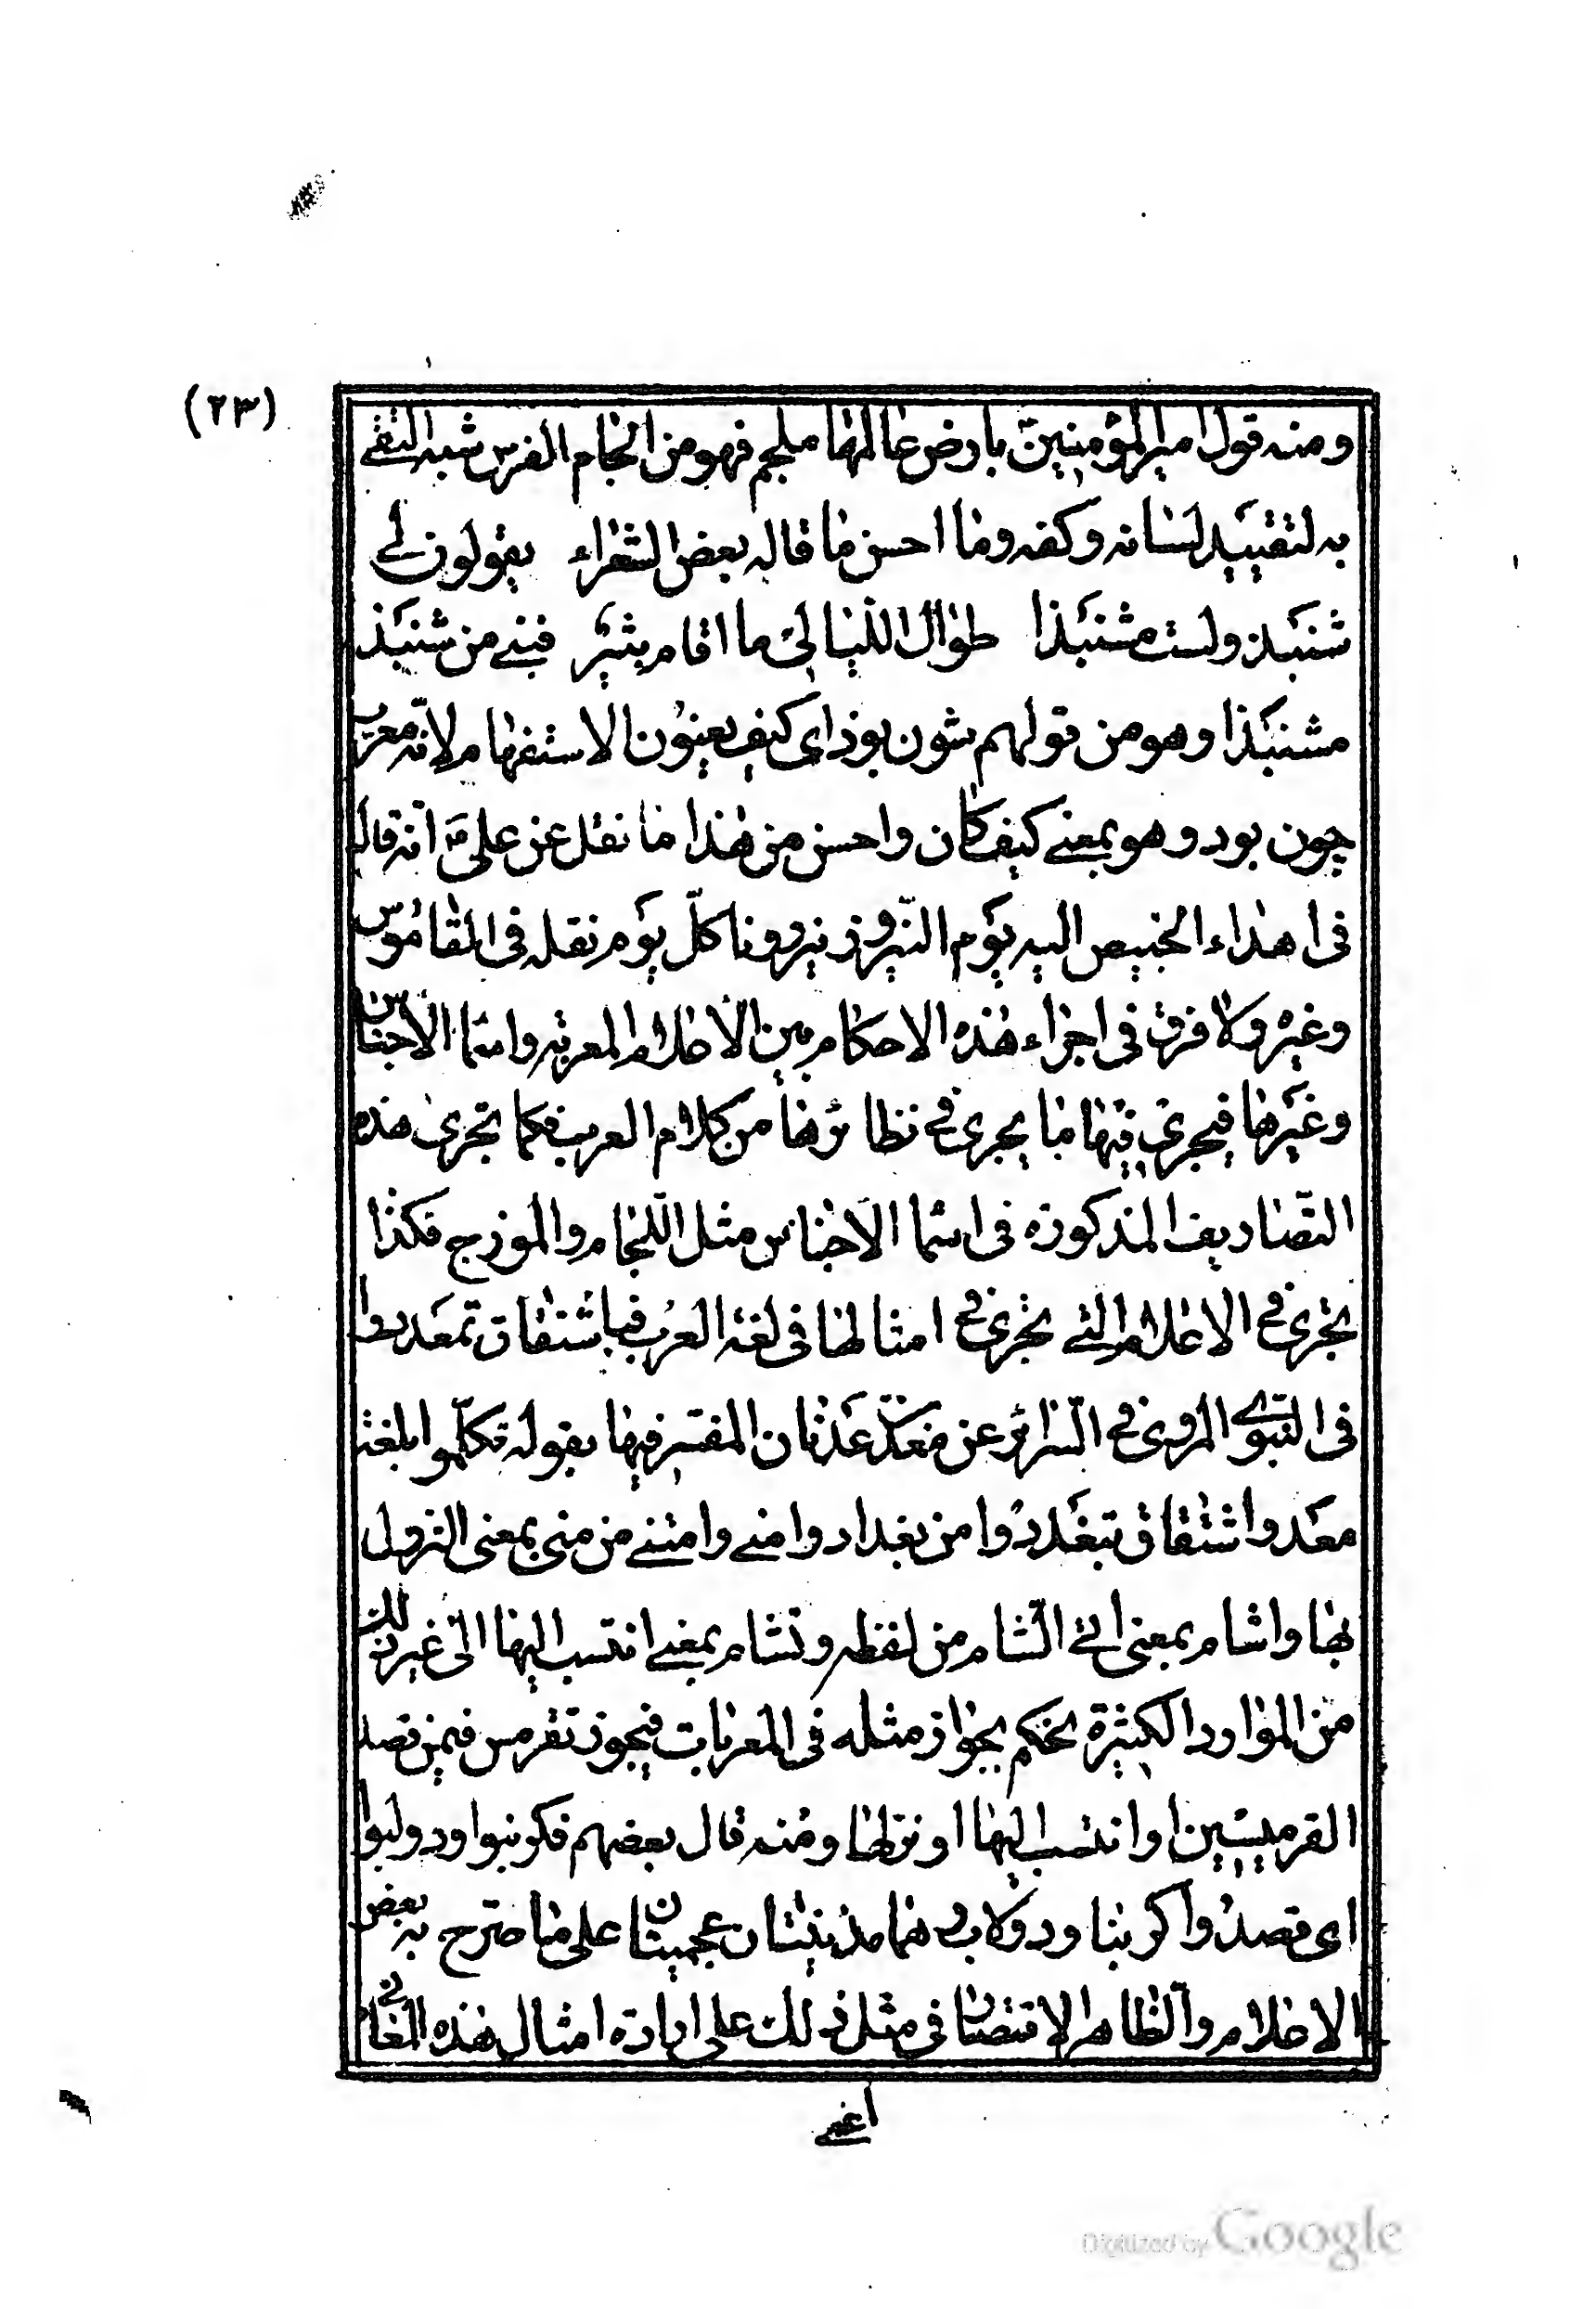 (٢٣)
ومنه قول امير المؤمنين بارض عالمها ملجم فهو من الجام الفرس شبه التقى
به لتقييد لسانه وكفه وما احسن ما قاله بعض الشعراء يقولون لى
شنبذ ولست مشنبذا طوال الليالى ما اقام ثبير فبنى من شنبذ
مشنبذا وهو من قولهم شون بوذ اى كيف يعنون الاستفهام لانه معرب
چون بود وهو بمعنى كيف كان واحسن من هذا ما نقل عن على انه قال
فى اهداء الخبيص اليه يوم النيروز نيرونا كل يوم نقله فى القاموس
وغيره ولا فرق فى اجراء هذه الاحكام بين الاعلام المعربه واسما الاجناس
وغيرها فيجرى فيها ما يجرى فى نظائرها من كلام العرب فكما تجرى هذه
التصاريف المذكورة فى اسما الاجناس مثل اللجام والموزج فكذا
تجرى فى الاعلام التى تجرى فى امثالها فى لغة العرب فباشتقاق تمعددوا
فى النبوى المروى فى السرائر عن معد عدنان المفسر فيها بقوله تكلموا بلغة
معد واشتقاق تبغددوا من بغداد وامنى وامتنى من منى بمعنى النزول
بها واشام بمعنى اتى الشام من لفظه وتشام بمعنى انتسب اليها الى غير ذلك
من الموارد الكثيرة نحكم بجواز مثله فى المعربات فيجوز تقرمس فيمن قصد
القرميسين او انتسب اليها او نزلها ومنه قال بعضهم فكرنبوا ودولبوا
اى قصدوا كرنبا ودولاب وهما مدينتان عجميتان على ما صرح به بعض
الاعلام والظاهر الاقتصار فى مثل ذلك على ارادة امثال هذه المعانى
اعنى
Digitized by Google